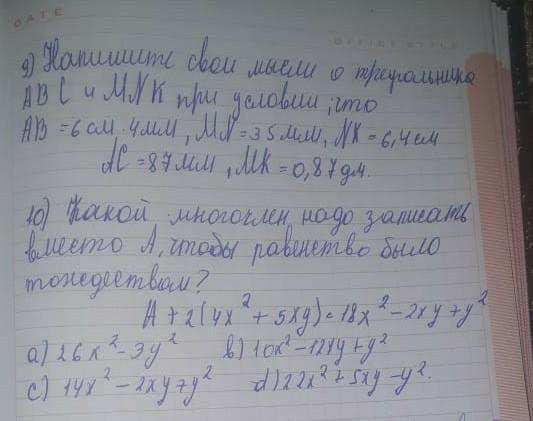 DATE
OFFICE STYLE
9) Напишите свои мысли о треугольника
ABC и MNK при условии, что
AB = 6 см 4 мм, MN = 35 мм, NK = 6,4 см
AC = 87 мм, MK = 0,87 дм.
10) Какой многочлен надо записать
вместо A, чтобы равенство было
тождеством?
A + 2(4x² + 5xy) = 18x² - 2xy + y²
a) 26x² - 3y² b) 10x² - 12xy + y²
c) 14x² - 2xy + y² d) 22x² + 5xy - y².